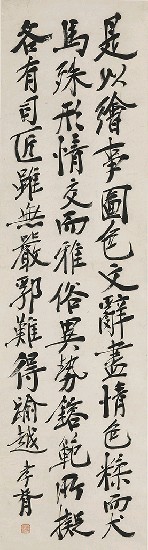 是以繪事圖色文辭盡情色糅而犬
馬殊形情交而雅俗異勢鎔範所擬
各有司匠雖無嚴郛難得踰越 李